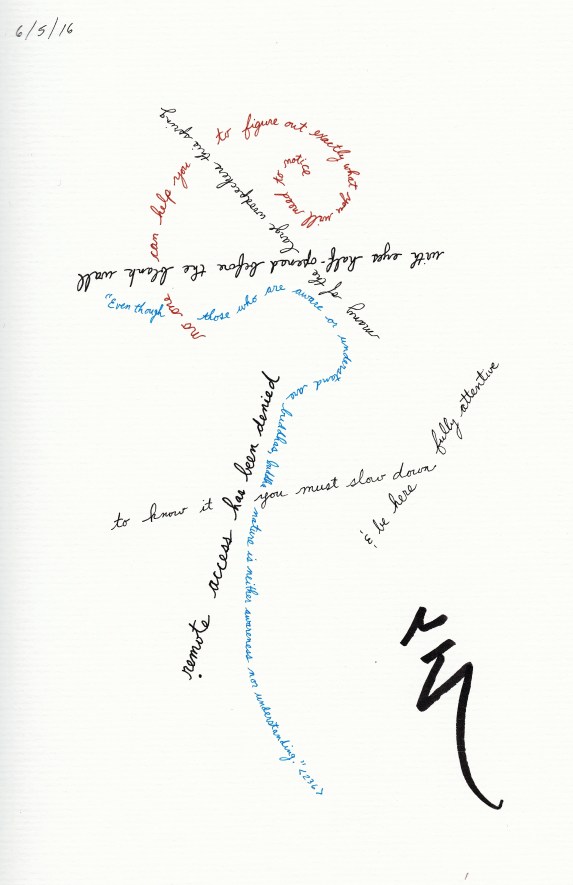 6/5/16
no one can help you to figure out exactly what you will need to notice
many of the large woodpeckers this spring
with eyes half-opened before the blank wall
"Even though those who are aware or understand are buddhas, buddha nature is neither awareness nor understanding." <236>
remote access has been denied
to know it you must slow down
& be here fully attentive